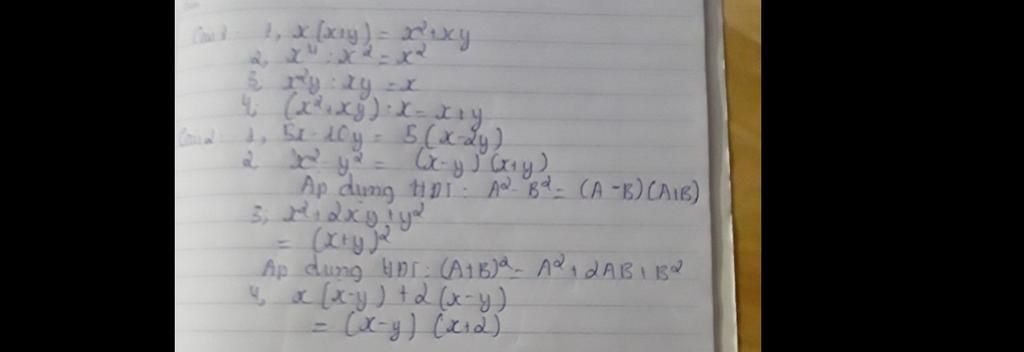 Câu 1: 1, x(x+y) = x²+xy
2, x⁴ : x² = x²
3, x²y : xy = x
4, (x²+xy) : x = x+y
Câu 2: 1, 5x - 10y = 5(x-2y)
2, x² - y² = (x-y)(x+y)
Ap dung HDT: A² - B² = (A-B)(A+B)
3, x²+2xy+y²
= (x+y)²
Ap dung HDT: (A+B)² = A²+2AB+B²
4, x(x-y) + 2(x-y)
= (x-y)(x+2)